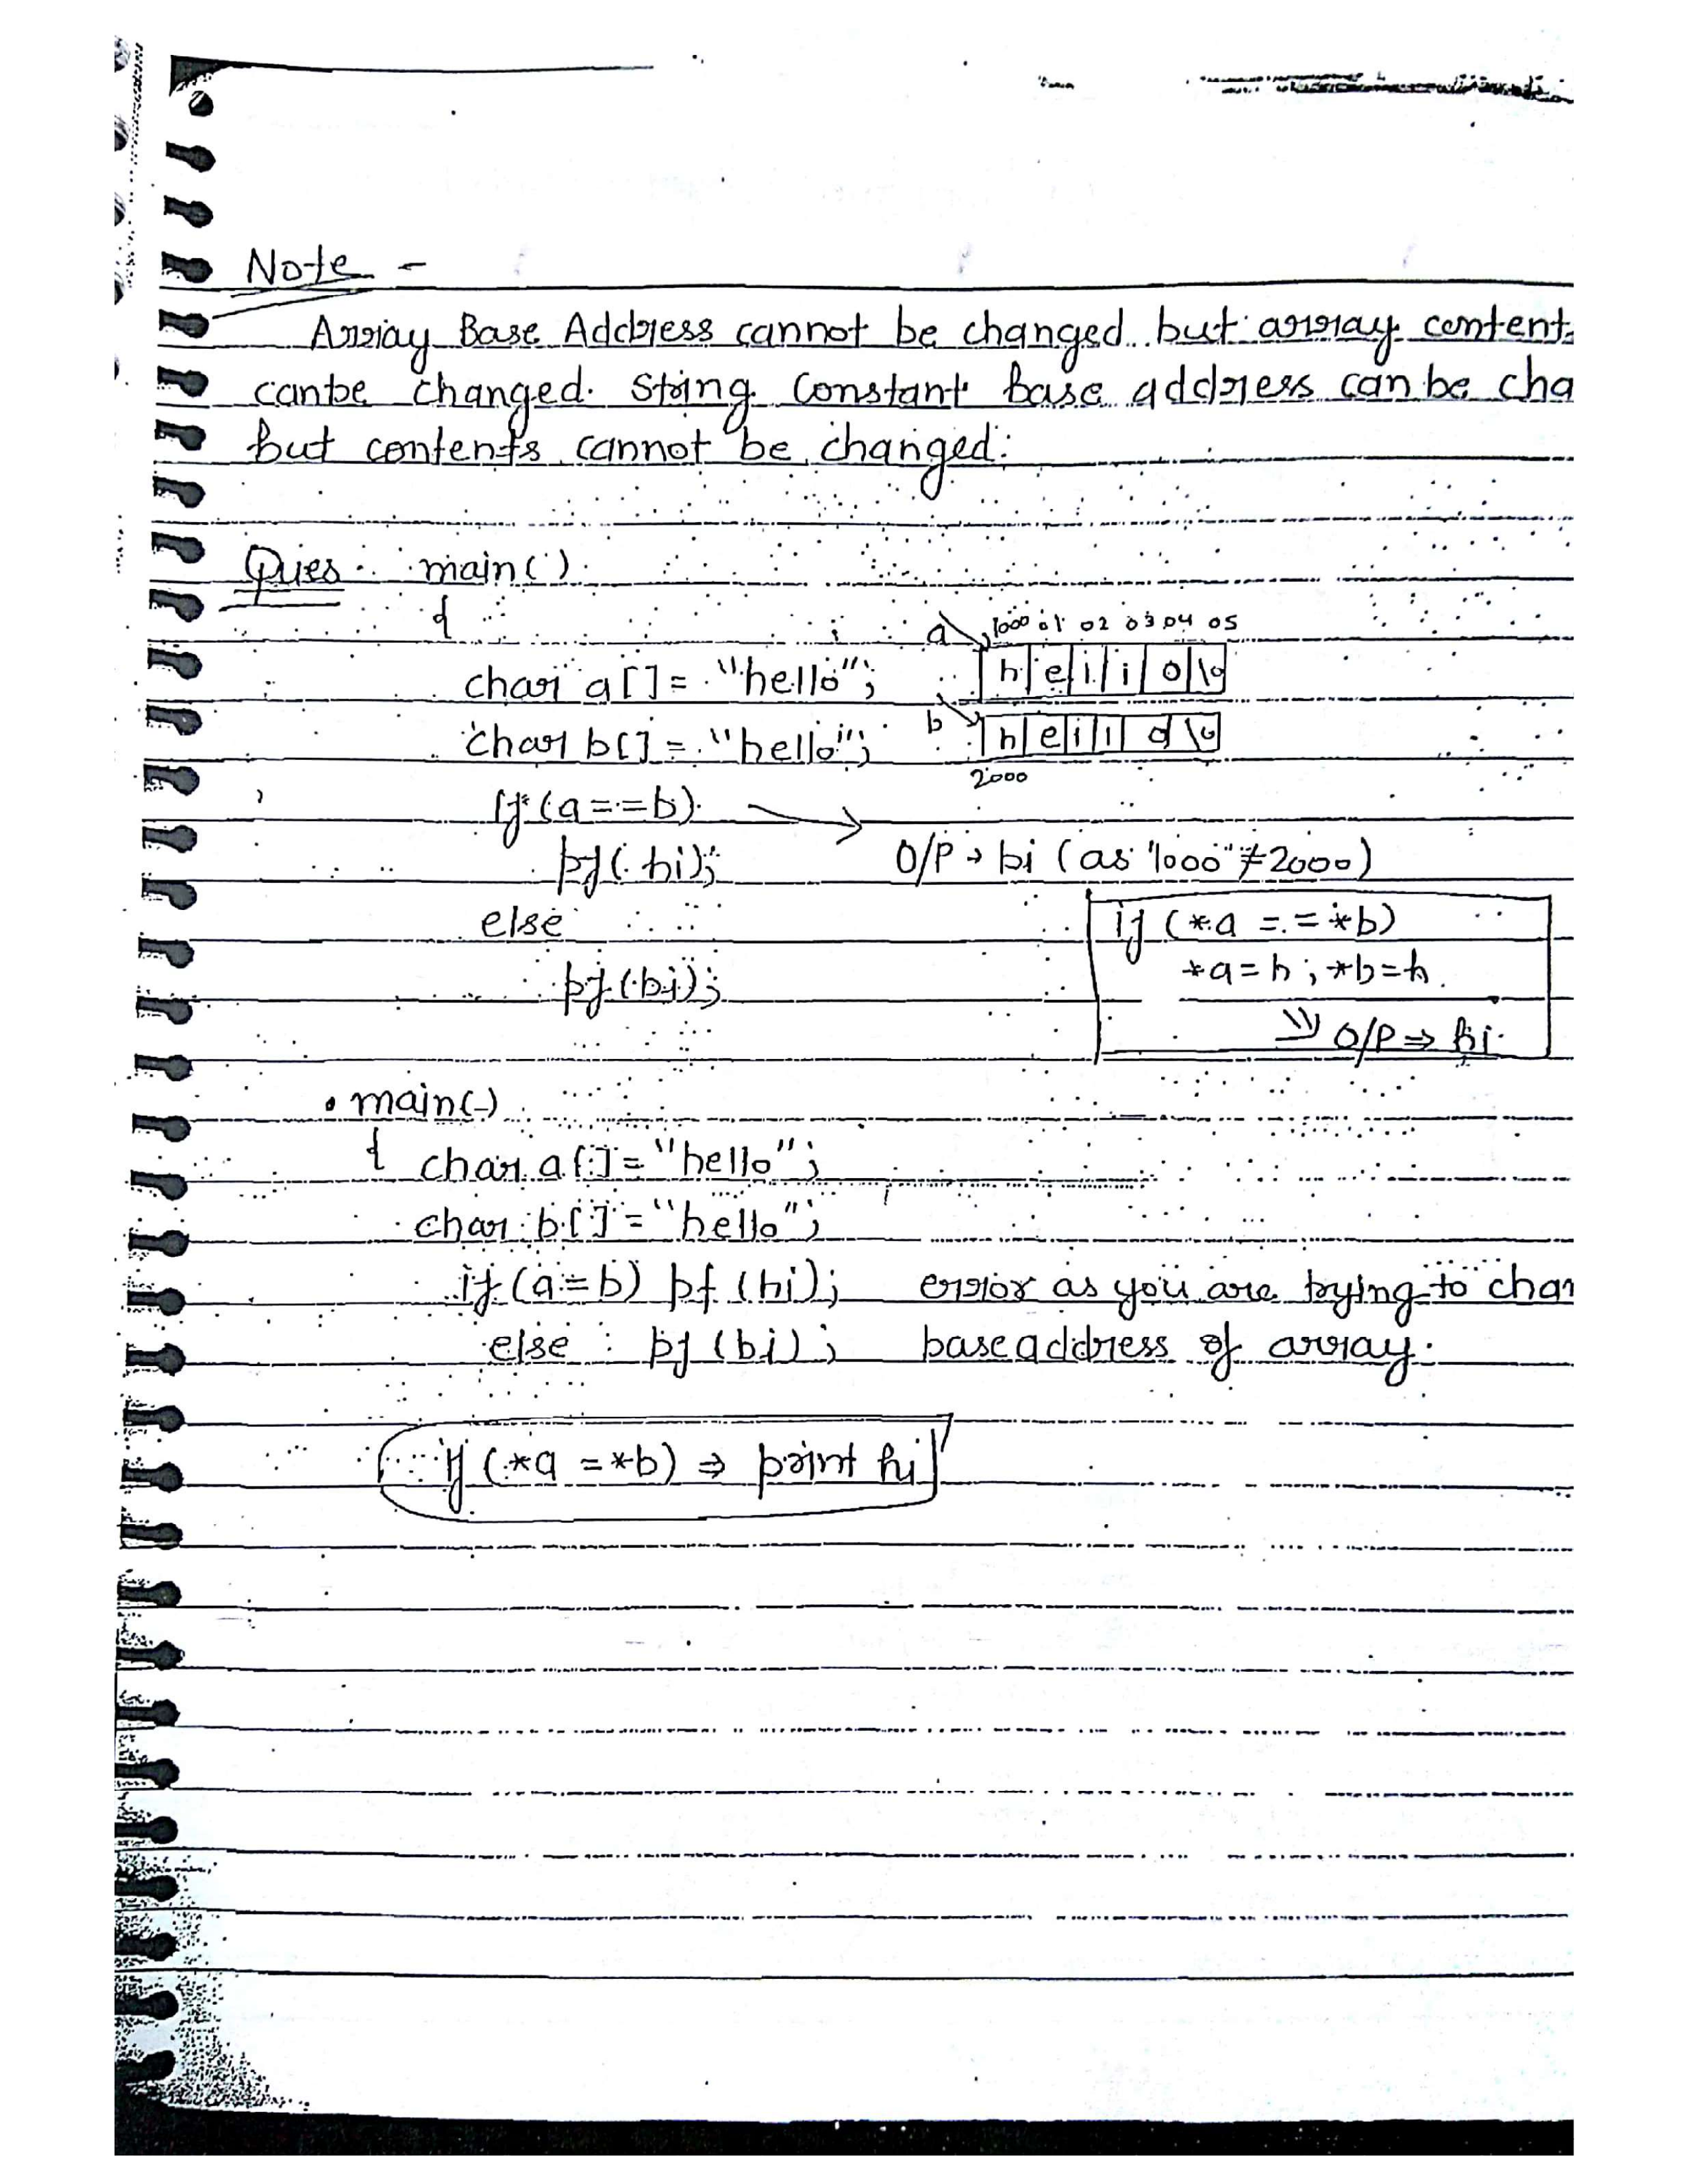 Note -
Array Base Address cannot be changed but array content
can be changed. String Constant base address can be cha
but contents cannot be changed.
Ques. main()
{
a 1000 01 02 03 04 05
char a[] = "hello"; h e l l o \0
char b[] = "hello"; b h e l l o \0
2000
if (a==b)
pf(hi); O/P → bi (as 1000 ≠ 2000)
else
pf(bi);
if (*a == *b)
*a=h; *b=h
⇒ O/P ⇒ hi
• main()
{ char a[] = "hello";
char b[] = "hello";
if (a=b) pf(hi); error as you are trying to chan
else pf(bi); base address of array.
if (*a = *b) ⇒ print hi